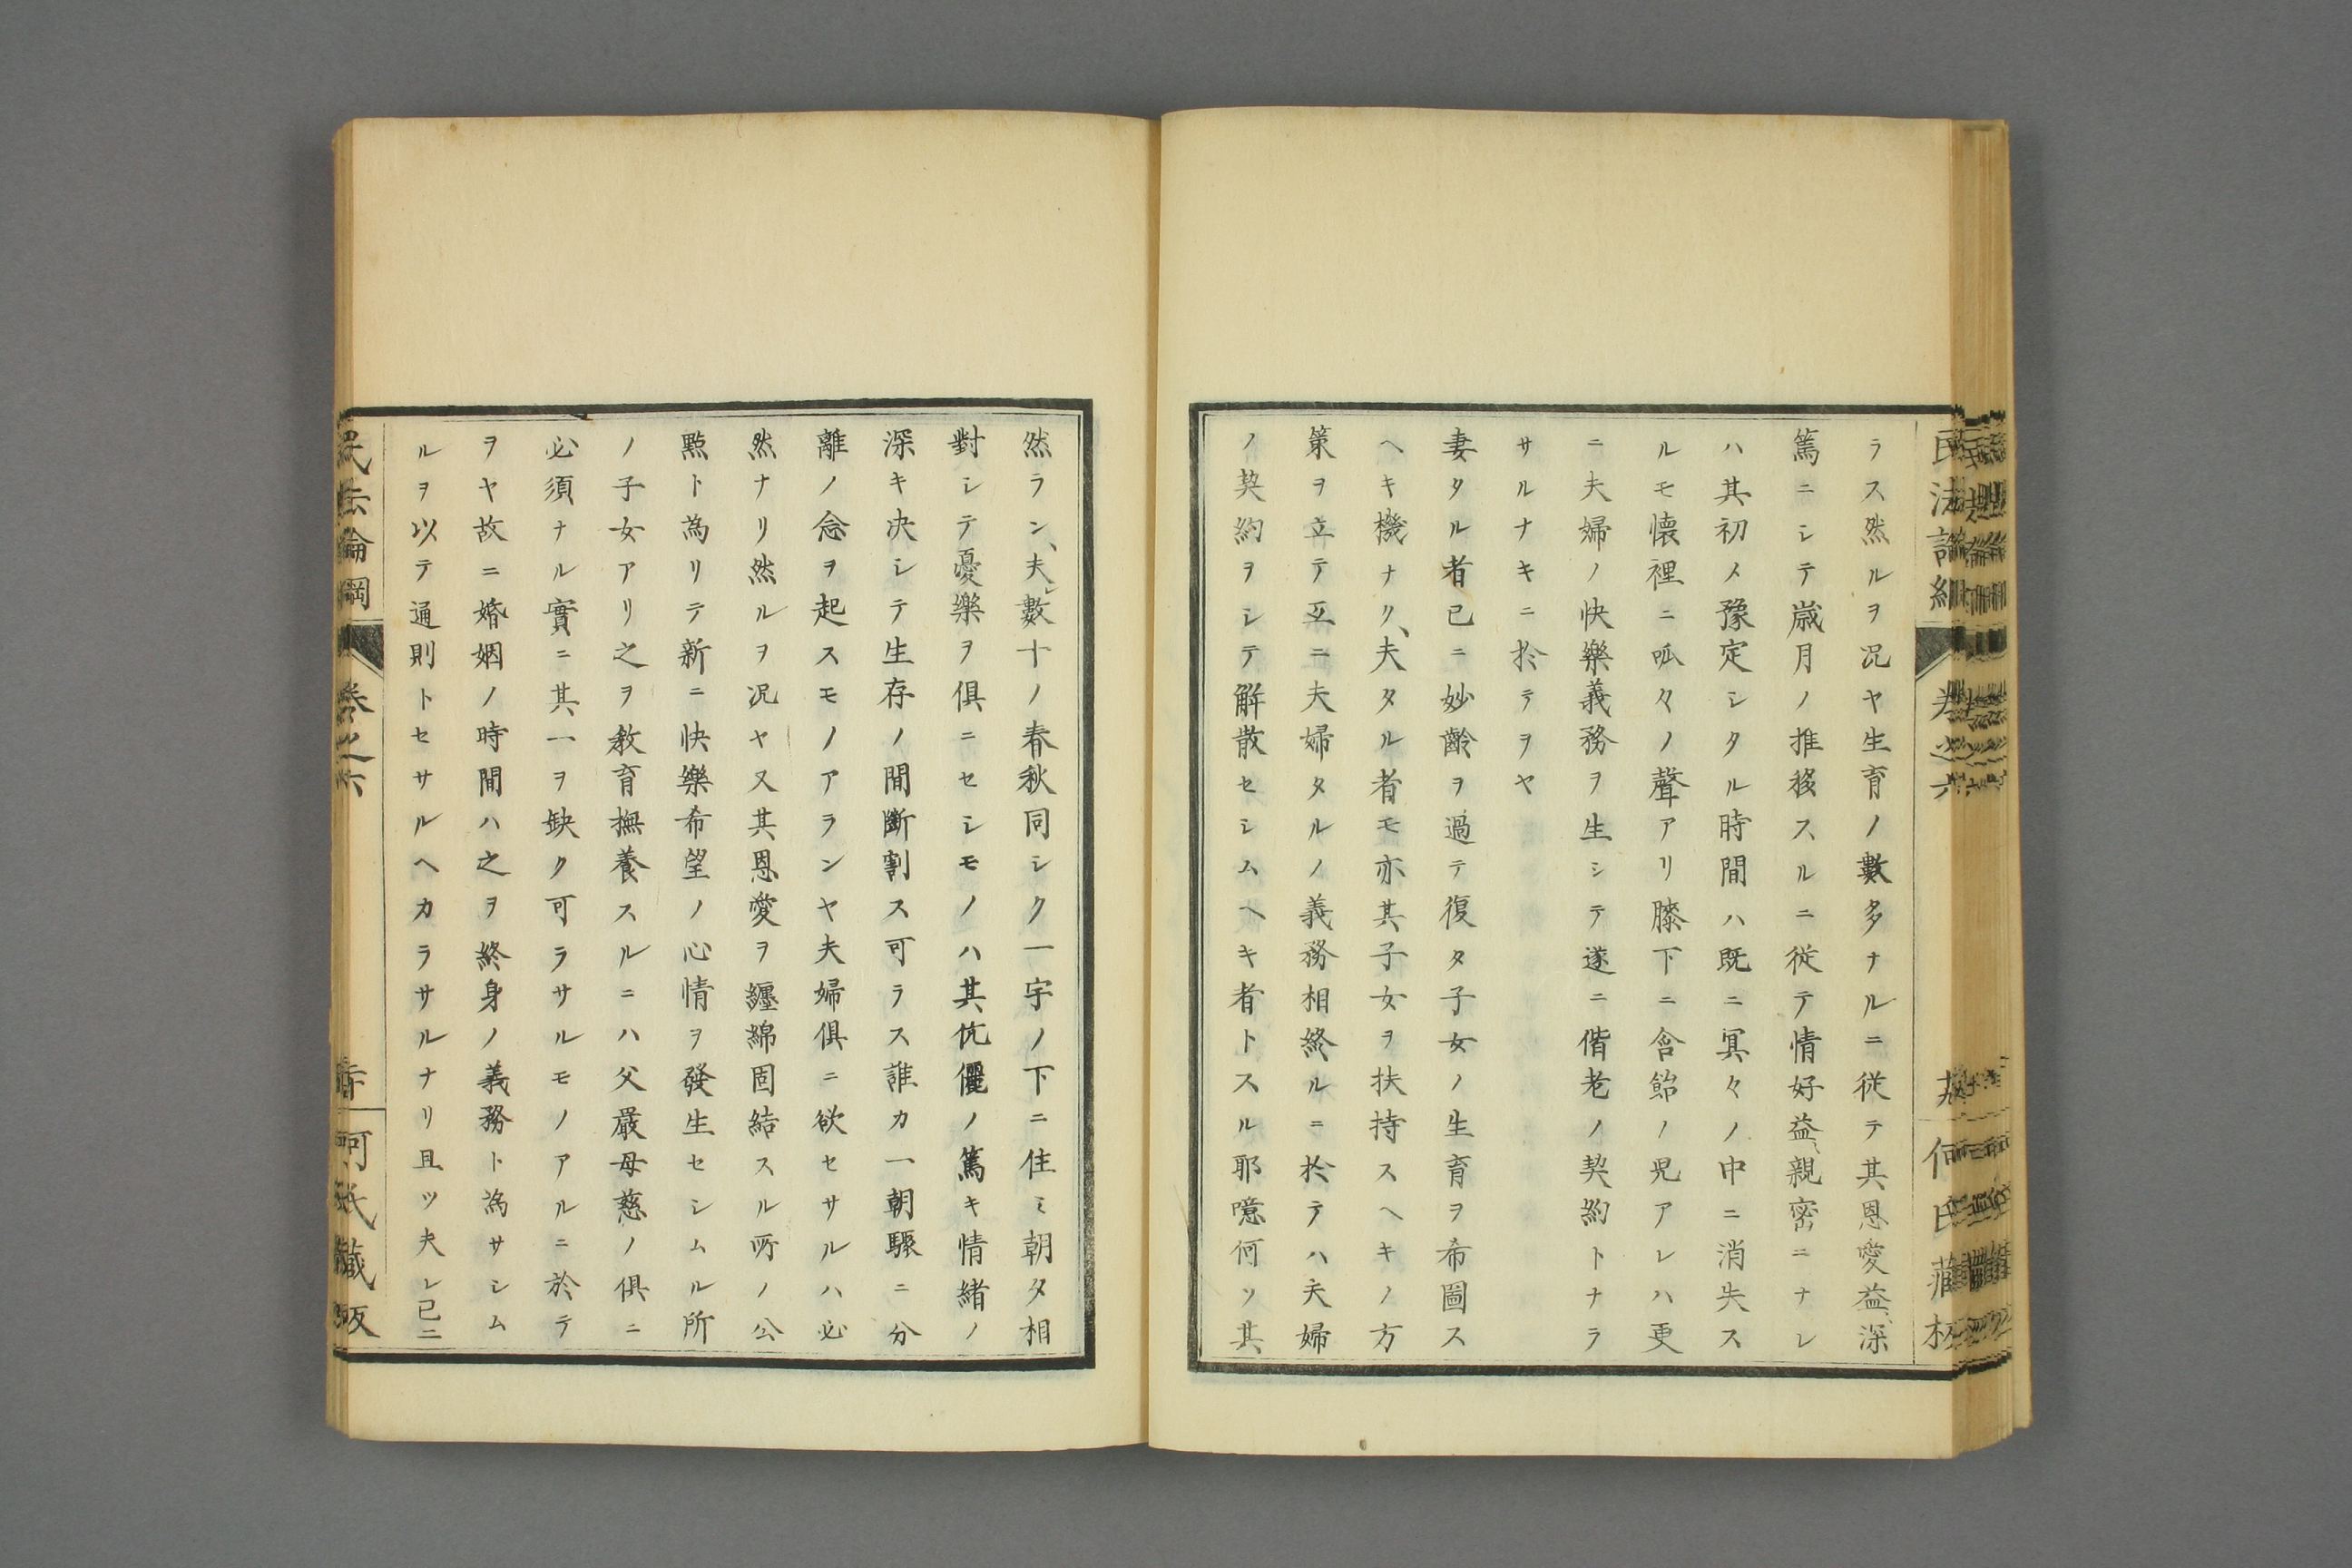 ラス然ルヲ况ヤ生育ノ數多ナルニ従テ其恩愛益〻深
篤ニシテ歳月ノ推移スルニ従テ情好益〻親密ニナレ
ハ其初メ豫定シタル時間ハ既ニ冥々ノ中ニ消失ス
ルモ懐裡ニ呱々ノ聲アリ膝下ニ含飴ノ児アレハ更
ニ夫婦ノ快樂義務ヲ生シテ遂ニ偕老ノ契約トナラ
サルナキニ於テヲヤ
妻タル者已ニ妙齢ヲ過テ復タ子女ノ生育ヲ希圖ス
ヘキ機ナク、夫タル者モ亦其子女ヲ扶持スヘキノ方
策ヲ立テ互ニ夫婦タルノ義務相終ルニ於テハ夫婦
ノ契約ヲシテ解散セシムヘキ者トスル耶噫何ソ其
然ラン、夫レ數十ノ春秋同シク一宇ノ下ニ住ミ朝夕相
對シテ憂樂ヲ俱ニセシモノハ其伉儷ノ篤キ情緒ノ
深キ决シテ生存ノ間斷割ス可ラス誰カ一朝驟ニ分
離ノ念ヲ起スモノアランヤ夫婦俱ニ欲セサルハ必
然ナリ然ルヲ况ヤ又其恩愛ヲ纏綿固結スル所ノ公
點ト為リテ新ニ快樂希望ノ心情ヲ發生セシムル所
ノ子女アリ之ヲ敎育撫養スルニハ父嚴母慈ノ俱ニ
必須ナル實ニ其一ヲ缺ク可ラサルモノアルニ於テ
ヲヤ故ニ婚姻ノ時間ハ之ヲ終身ノ義務ト為サシム
ルヲ以テ通則トセサルヘカラサルナリ且ツ夫レ已ニ
民法論綱 巻之六
何氏藏版